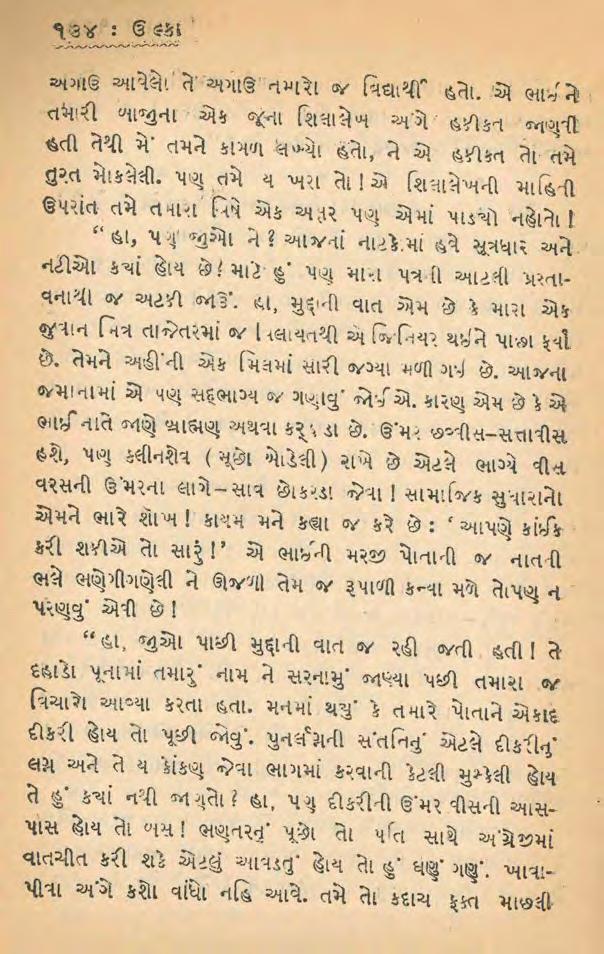 ૧૩૪ : ઉલ્કા
અગાઉ આવેલો તે અગાઉ તમારો જ વિદ્યાર્થી હતો. એ ભાઈને
તમારી બાજુના એક જૂના શિલાલેખ અંગે હકીકત જાણવી
હતી તેથી મેં તમને કાગળ લખ્યો હતો, ને એ હકીકત તો તમે
તુરત મોકલેલી. પણ તમે ય ખરા તો ! એ શિલાલેખની માહિતી
ઉપરાંત તમે તમારા વિષે એક અક્ષર પણ એમાં પાડ્યો નહોતો !
“ હા, પણ જુઓ ને ? આજનાં નાટકોમાં હવે સૂત્રધાર અને
નટીઓ ક્યાં હોય છે ! માટે હું પણ મારા પત્રની આટલી પ્રસ્તા-
વનાથી જ અટકી જાઉં. હા, મુદ્દાની વાત એમ છે કે મારા એક
જુવાન મિત્ર તાજેતરમાં જ વિલાયતથી એન્જિનિયર થઈને પાછા ફર્યા
છે. તેમને અહીંની એક મિલમાં સારી જગ્યા મળી ગઈ છે. આજના
જમાનામાં એ પણ સદ્દભાગ્ય જ ગણાવું જોઈએ. કારણ એમ છે કે એ
ભાઈ નાતે જાણે બ્રાહ્મણ અથવા કર્‍હાડા છે. ઉંમર છવ્વીસ–સત્તાવીસ
હશે, પણ કલીનશેવ ( મૂછો બોડેલી ) રાખે છે એટલે ભાગ્યે વીસ
વરસની ઉંમરના લાગે–સાવ છોકરડા જેવા ! સામાજિક સુધારાનો
એમને ભારે શોખ ! કાયમ મને કહ્યા જ કરે છે : ‘ આપણે કાંઈક
કરી શકીએ તો સારું !’ એ ભાઈની મરજી પોતાની જ નાતની
ભલે ભણેગીગણેલી ને ઊજળી તેમ જ રૂપાળી કન્યા મળે તોપણ ન
પરણવું એવી છે !
“ હા, જુઓ પાછી મુદ્દાની વાત જ રહી જતી હતી ! તે
દહાડો પૂનામાં તમારું નામ ને સરનામું જાણ્યા પછી તમારા જ
વિચારો આવ્યા કરતા હતા. મનમાં થયું કે તમારે પોતાને એકાદ
દીકરી હોય તો પૂછી જોવું. પુનર્લગ્નની સંતતિનું એટલે દીકરીનું
લગ્ન અને તે ય કોંકણ જેવા ભાગમાં કરવાની કેટલી મુશ્કેલી હોય
તે હું ક્યાં નથી જાણતો ? હા, પણ દીકરીની ઉંમર વીસની આસ-
પાસ હોય તો બસ ! ભણતરનું પૂછો તો પતિ સાથે અંગ્રેજીમાં
વાતચીત કરી શકે એટલું આવડતું હોય તો હું ઘણું ગણું. ખાવા-
પીવા અંગે કશો વાંધો નહિ આવે. તમે તો કદાચ ફક્ત માછલી